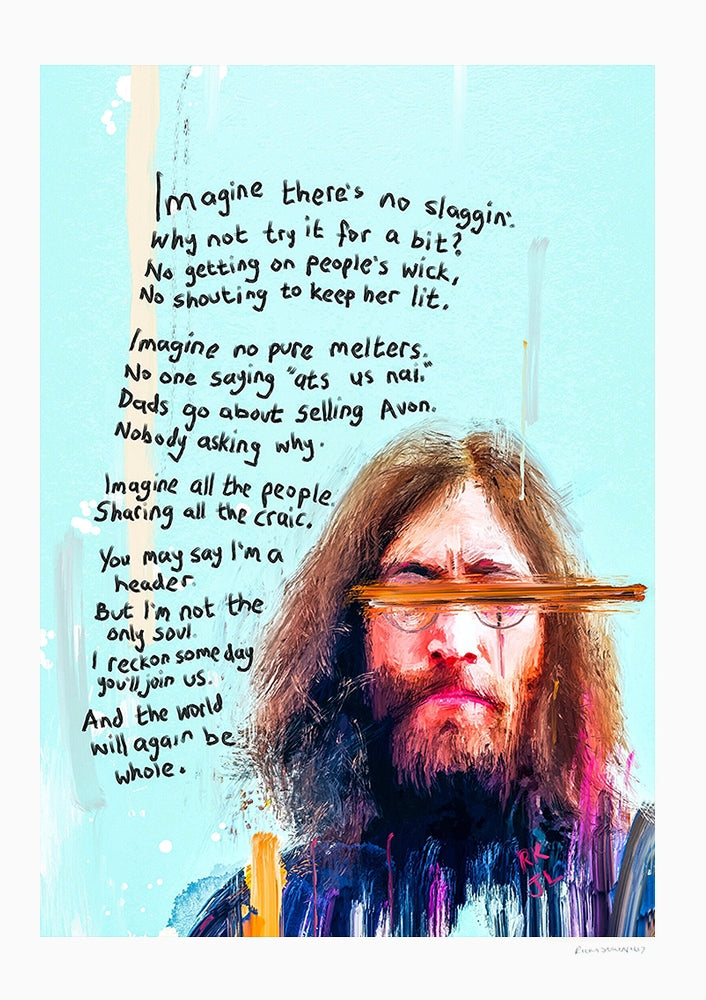 Imagine there's no slaggin'.
Why not try it for a bit?
No getting on people's wick,
No shouting to keep her lit.
Imagine no pure melters.
No one saying "ats us nai."
Dads go about selling Avon.
Nobody asking why.
Imagine all the people.
Sharing all the craic.
You may say I'm a
header.
But I'm not the
only soul.
I reckon some day
you'll join us.
And the world
will again be
whole.
RK
JL